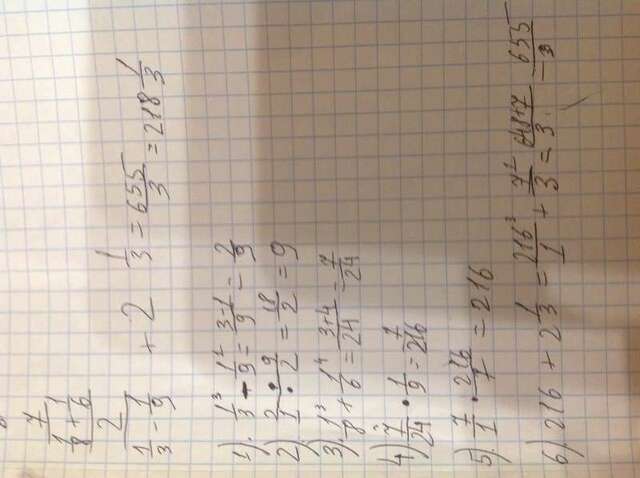 7
1/8 + 1/6
2
1/3 - 1/9 + 2 1/3 = 655/3 = 218 1/3
1). 1³/3 - 1¹/9 = 3-1/9 = 2/9
2) 2/1 · 9/2 = 18/2 = 9
3) 1³/8 + 1⁴/6 = 3+4/24 = 7/24
4) 7/24 · 1/9 = 7/216
5). 7/1 · 216/7 = 216
6). 216 + 2 1/3 = 216³/1 + 7¹/3 = 648+7/3 = 655/3